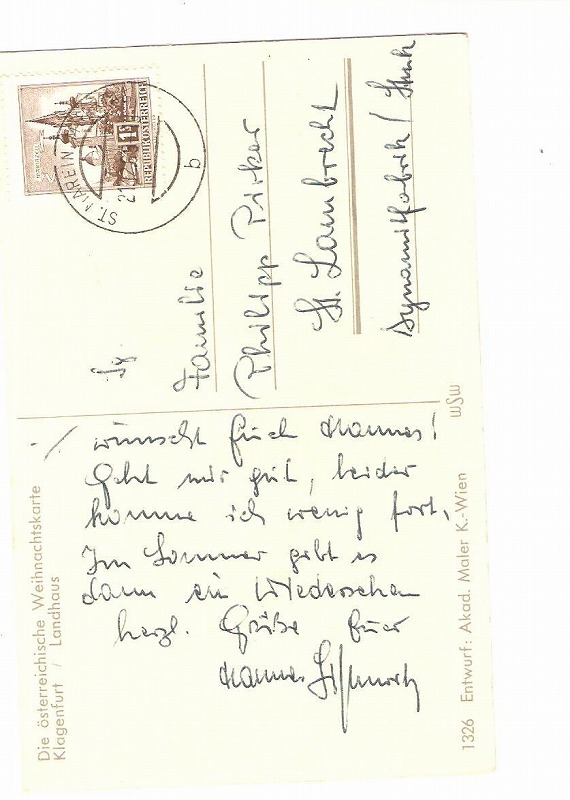 Die österreichische Weihnachtskarte
Klagenfurt / Landhaus
wünscht Euch Hannes!
Geht mir gut, leider
komme ich wenig fort,
Im Sommer gibt es
dann ein Wiedersehen
herzl. Grüße Euer
Hannes
REPUBLIK ÖSTERREICH
ST. MAREIN
21
b
Fam
Familie
Philipp Pirker
St. Lambrecht
Dynamitfabrik / Stmk
1326 Entwurf: Akad. Maler K.-Wien WSW